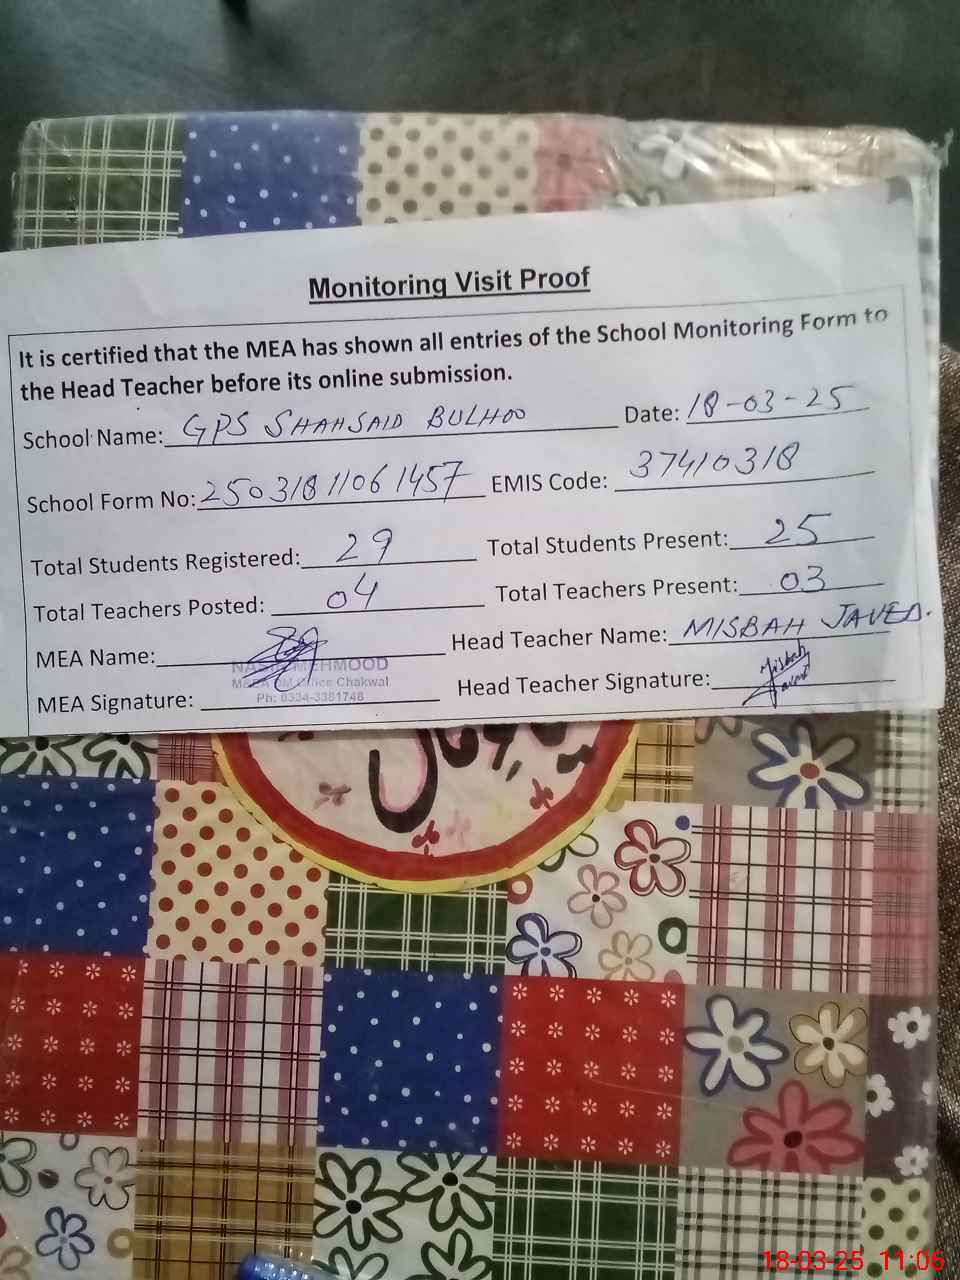 Monitoring Visit Proof
It is certified that the MEA has shown all entries of the School Monitoring Form to
the Head Teacher before its online submission.
School Name: GPS SHAHSAID BULHOO Date: 18-03-25
School Form No: 250318 1106 1457 EMIS Code: 37410318
Total Students Registered: 29 Total Students Present: 25
Total Teachers Posted: 04 Total Teachers Present: 03
MEA Name: Head Teacher Name: MISBAH JAVED.
MEHMOOD
Office Chakwal
Ph: 0334-3381748
MEA Signature: Head Teacher Signature: Misbah
Javed
18-03-25 11:06